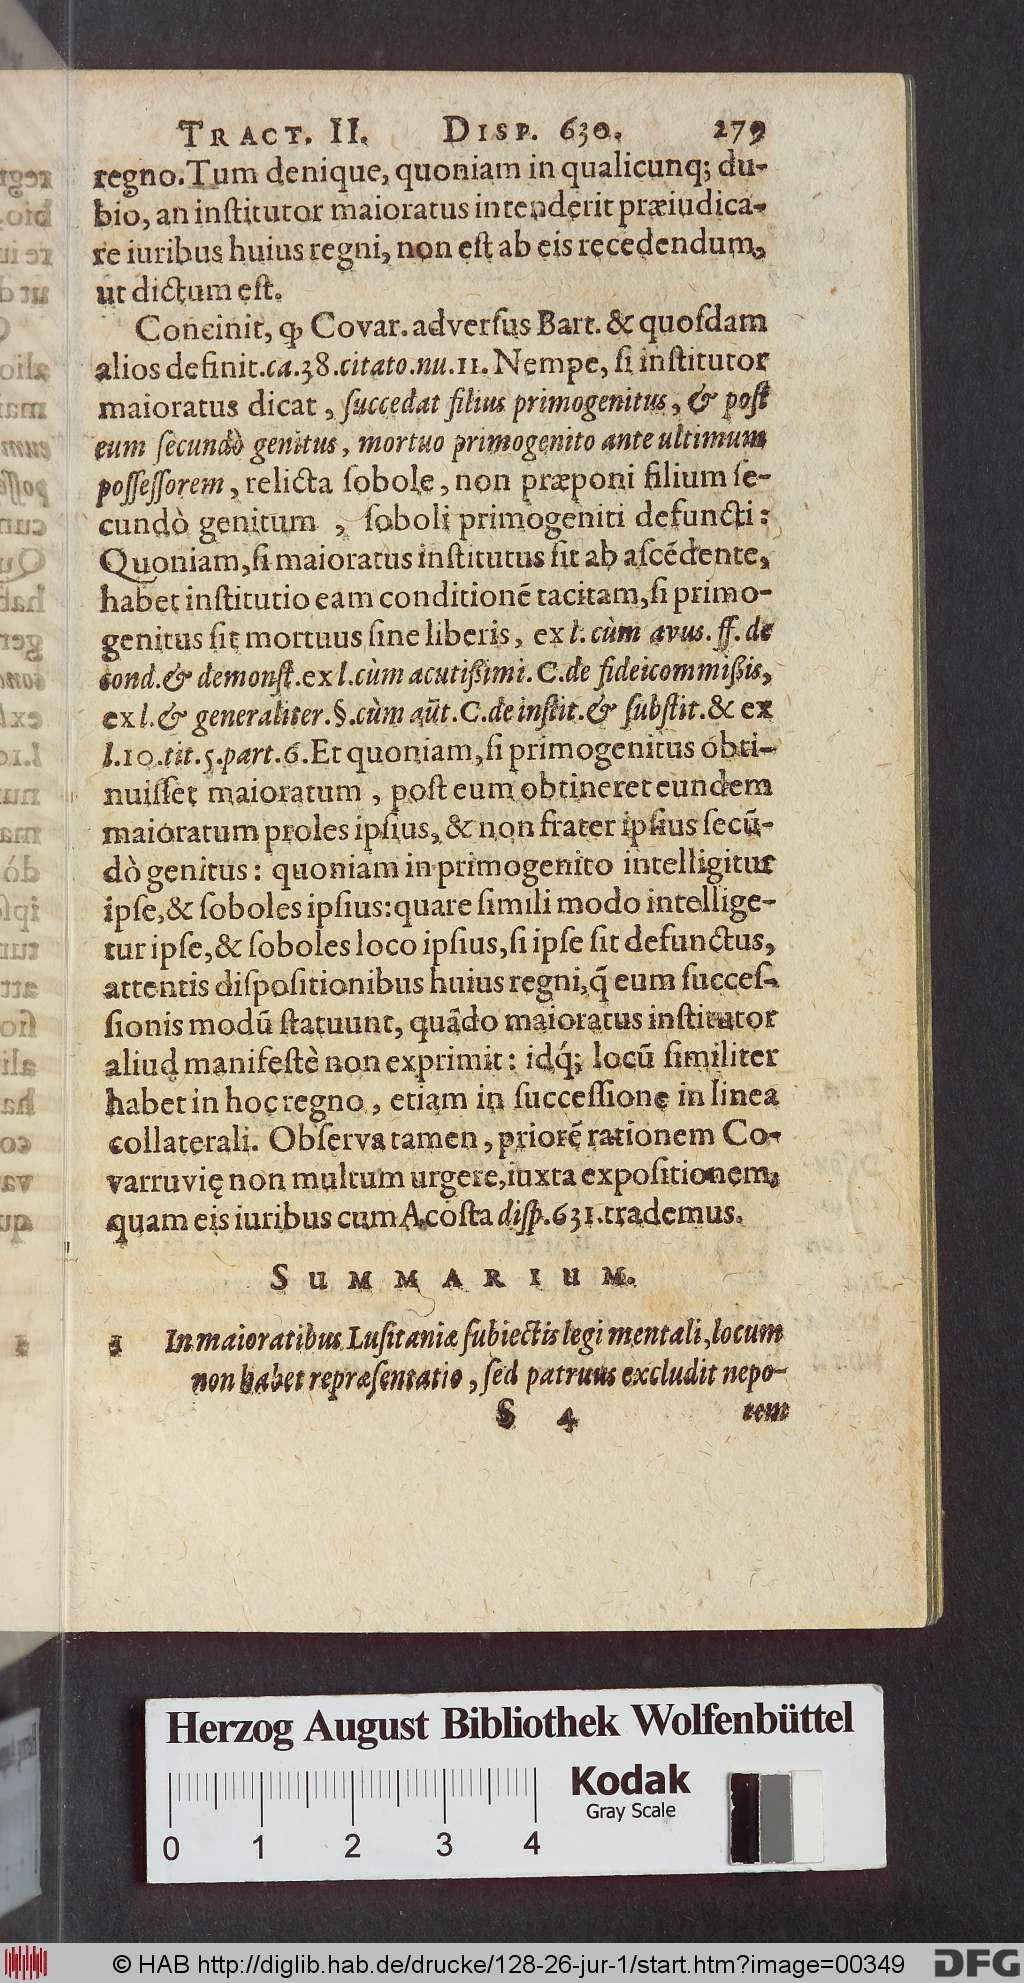 TRACT. II. DISP. 630. 279
regno. Tum denique, quoniam in qualicunq; du-
bio, an institutor maioratus intenderit præiudica-
re iuribus huius regni, non est ab eis recedendum,
ut dictum est.
Concinit, ꝙ Covar. adversus Bart. & quosdam
alios definit. ca. 38. citato. nu. 11. Nempe, si institutor
maioratus dicat, succedat filius primogenitus, & post
eum secundò genitus, mortuo primogenito ante ultimum
possessorem, relicta sobole, non præponi filium se-
cundò genitum, soboli primogeniti defuncti:
Quoniam, si maioratus institutus sit ab ascẽdente,
habet institutio eam conditionẽ tacitam, si primo-
genitus sit mortuus sine liberis, ex l. cùm avus. ff. de
cond. & demonst. ex l. cùm acutissimi. C. de fideicommissis,
ex l. & generaliter. §. cùm aũt. C. de instit. & substit. & ex
l. 10. tit. 5. part. 6. Et quoniam, si primogenitus obti-
nuisset maioratum, post eum obtineret eundem
maioratum proles ipsius, & non frater ipsius secũ-
dò genitus: quoniam in primogenito intelligitur
ipse, & soboles ipsius: quare simili modo intellige-
tur ipse, & soboles loco ipsius, si ipse sit defunctus,
attentis dispositionibus huius regni, q̃ eum succes-
sionis modũ statuunt, quãdo maioratus institutor
aliud manifestè non exprimit: idq́; locũ similiter
habet in hoc regno, etiam in successione in linea
collaterali. Observa tamen, priorẽ rationem Co-
varruvię non multum urgere, iuxta expositionem,
quam eis iuribus cum Acosta disp. 631. trademus.
SUMMARIUM.
1 In maioratibus Lusitaniæ subiectis legi mentali, locum
non habet repræsentatio, sed patruus excludit nepo-
S 4 tem
Herzog August Bibliothek Wolfenbüttel
Kodak
Gray Scale
0 1 2 3 4
© HAB http://diglib.hab.de/drucke/128-26-jur-1/start.htm?image=00349 DFG